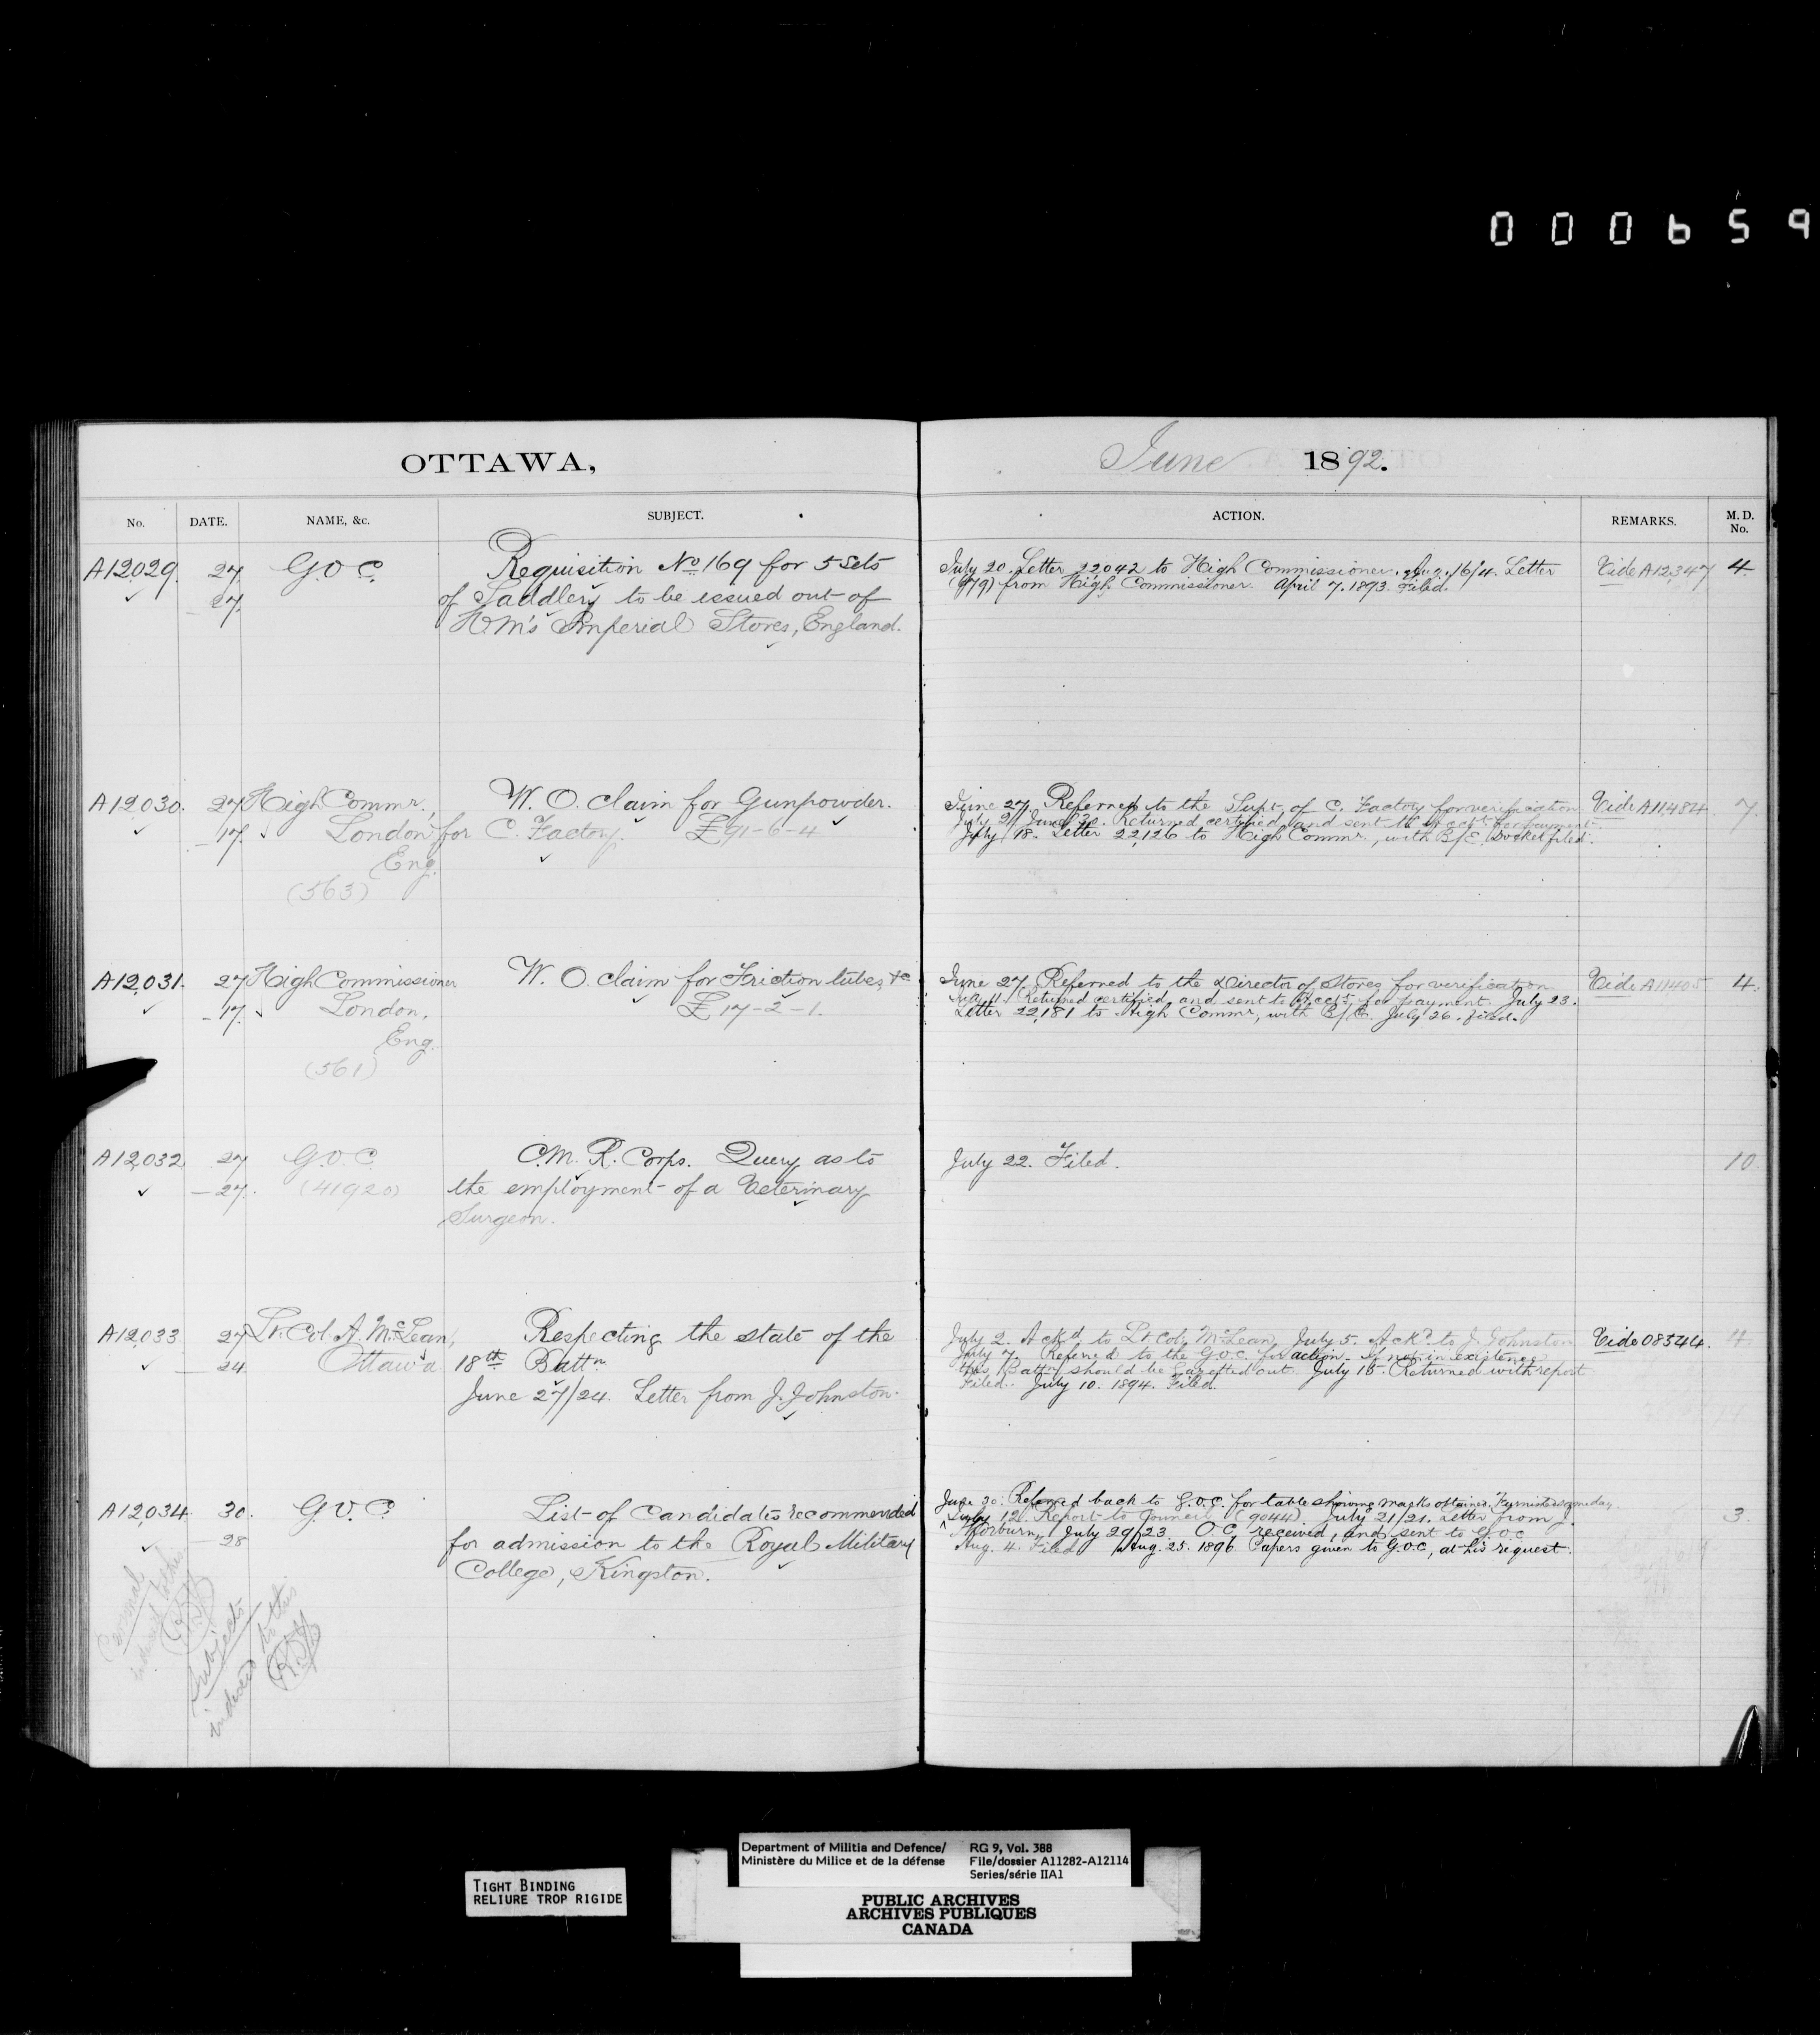 000659
OTTAWA,
June 1892.
No. DATE. NAME, &c. SUBJECT. ACTION. REMARKS. M. D. No.
A12029. 27 G.O.C. Requisition No 169 for 5 Sets
– 27. of Saddlery to be issued out of
H.M's Imperial Stores, England.
July 20. Letter 22042 to High Commissioner. 16/4. Letter
(979) from High Commissioner. April 7. 1893. Filed.
Vide A12,347 4.
A12,030. 27 High Commr, W. O. claim for Gunpowder.
– 17. London for C. Factory. £91-6-4
Eng.
(563)
June 27. Referred to the Supt. of C. Factory for verification.
July 2/June 30. Returned certified, and sent to Acct. for payment.
July 18. Letter 22,126 to High Commr., with B/E. Docket filed.
Vide A11,484 7.
A12,031. 27 High Commissioner W. O. claim for Friction tubes, &c
– 17. London, £17-2-1.
Eng.
(561)
June 27. Referred to the Director of Stores for verification
July 11. Returned certified, and sent to Acct. for payment. July 23.
Letter 22,181 to High Commr, with B/E. July 26. Filed.
Vide A11405 4.
A12,032 27 G.O.C. C.M.R. Corps. Query as to
– 27. (41920) the employment of a Veterinary
Surgeon.
July 22. Filed.
10
A12,033 27 Lt. Col. A. McLean, Respecting the state of the
– 24 Ottawa 18th Battn
June 27/24. Letter from J. Johnston.
July 2. Ackd to Lt Col. McLean, July 5. Ackd to J. Johnston
July 7. Referred to the G.O.C. for action. If not in existence
this Battn should be gazetted out. July 15. Returned with report
Filed. July 10. 1894. Filed.
Vide 083744. 4
A12,034 30. G.O.C. List of Candidates recommended
– 28 for admission to the Royal Military
College, Kingston.
June 30. Referred back to G.O.C. for table showing marks obtained. Furnished same day.
July 12. Report to Council (9044). July 21/21. Letter from J.
Thorburn, July 29/23. O.C. received, and sent to G.O.C.
Aug. 4. Filed. Aug. 25. 1896. Papers given to G.O.C., at his request.
3.
Subjects
indexed to this
TIGHT BINDING
RELIURE TROP RIGIDE
Department of Militia and Defence/
Ministère du Milice et de la défense
RG 9, Vol. 388
File/dossier A11282-A12114
Series/série IIA1
PUBLIC ARCHIVES
ARCHIVES PUBLIQUES
CANADA